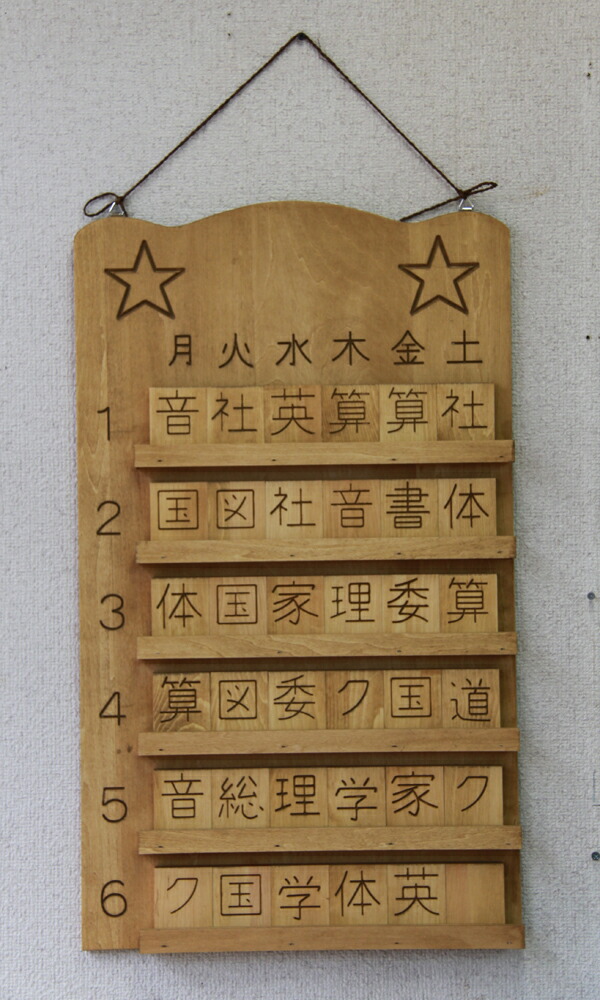 月 火 水 木 金 土
1 音 社 英 算 算 社
2 国 図 社 音 書 体
3 体 国 家 理 委 算
4 算 図 委 ク 国 道
5 音 総 理 学 家 ク
6 ク 国 学 体 英